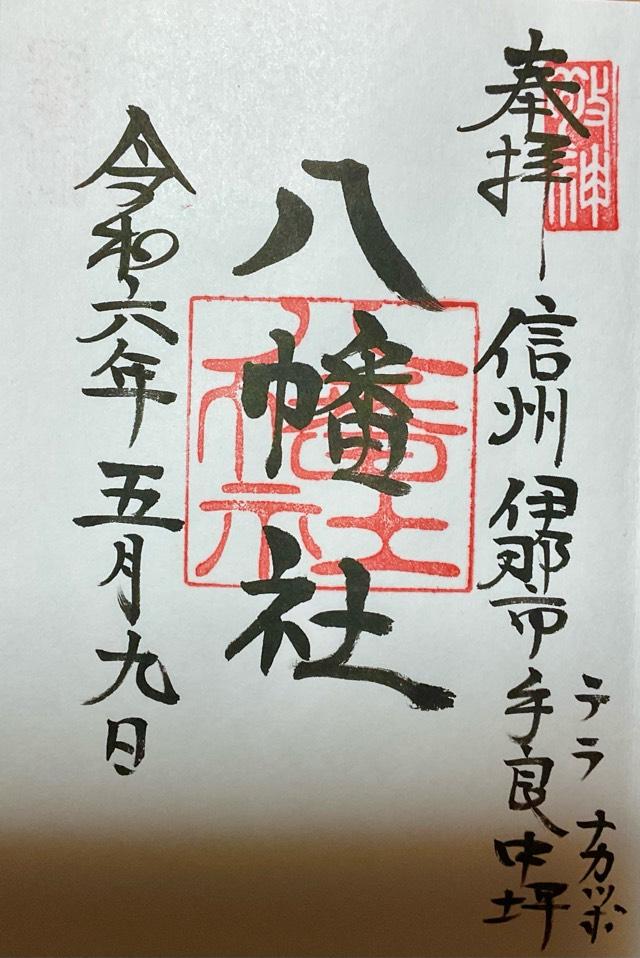 奉拝
敬神
信州伊那市手良中坪
テラ ナカツボ
八幡社
八幡社
令和六年五月九日